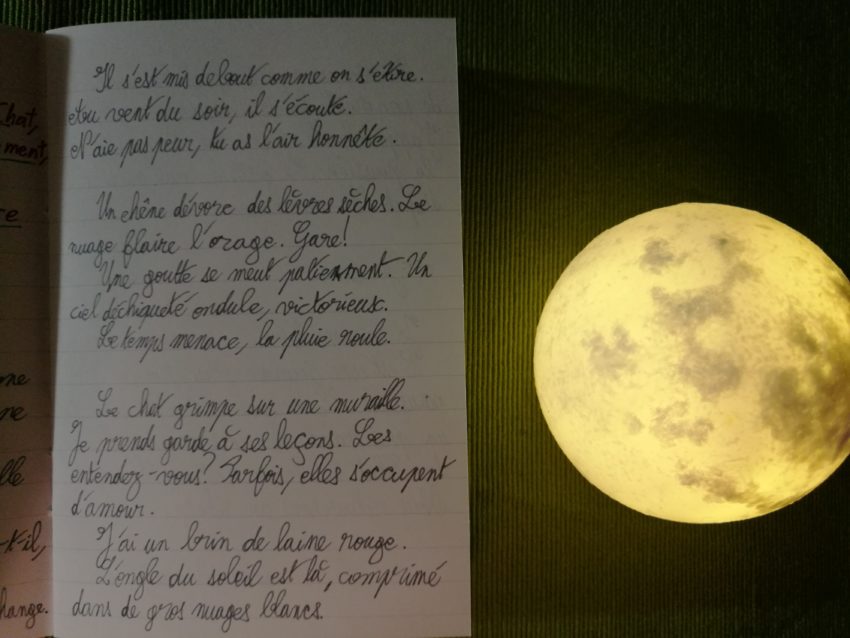 Chat,
ment,
re
ne
ne
lle
-t-il,
hange.
Il s'est mis debout comme on s'étire.
et au vent du soir, il s'écoute.
N'aie pas peur, tu as l'air honnête.
Un chêne dévore des lèvres sèches. Le
nuage flaire l'orage. Gare!
Une goutte se meut patiemment. Un
ciel déchiqueté ondule, victorieux.
Le temps menace, la pluie roule.
Le chat grimpe sur une muraille.
Je prends garde à ses leçons. Les
entendez-vous? Parfois, elles s'occupent
d'amour.
J'ai un brin de laine rouge.
L'ongle du soleil est là, comprimé
dans de gros nuages blancs.